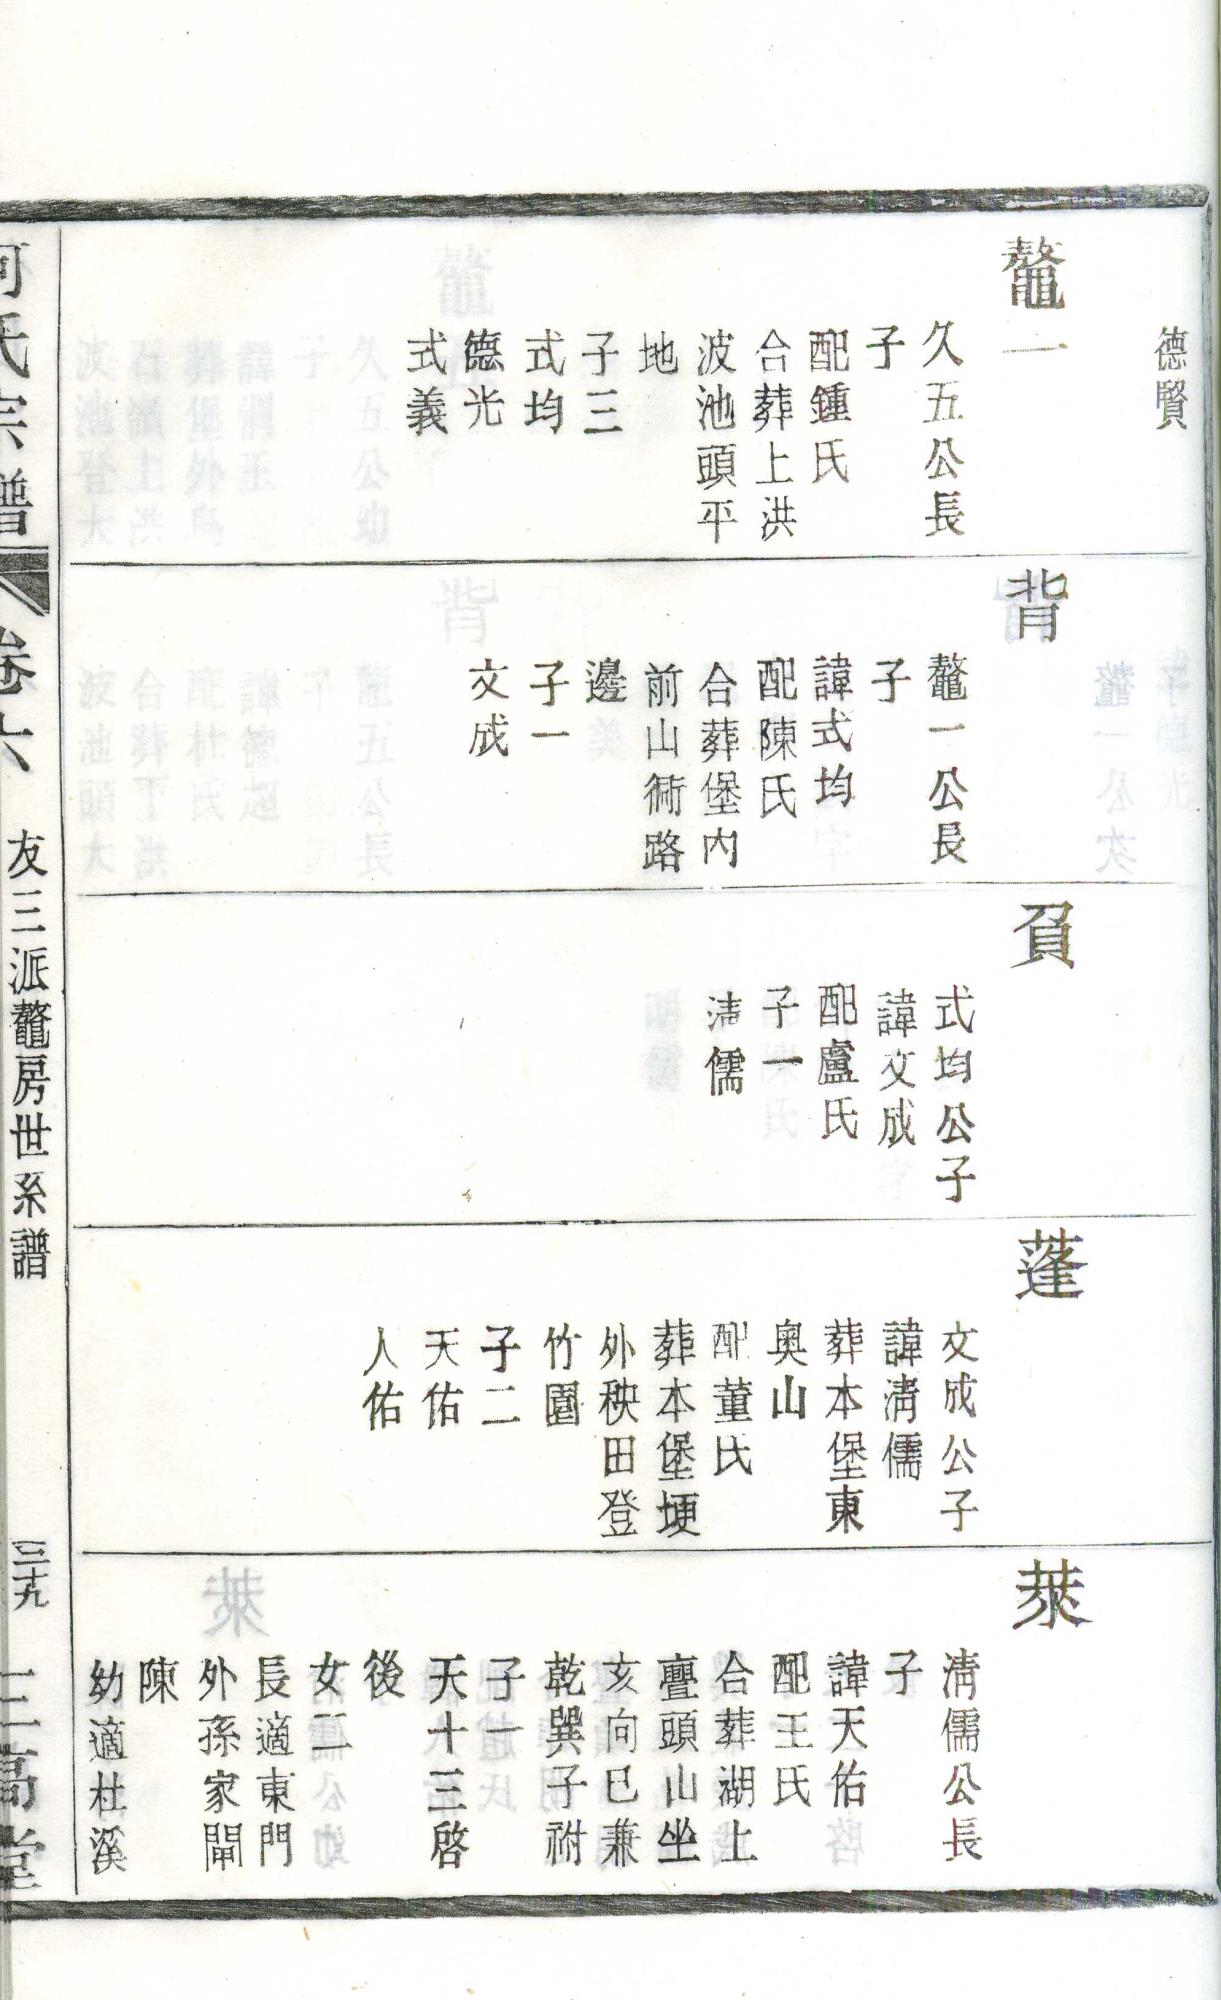 德賢
鼇一
久五公長
子
配鍾氏
合葬上洪
波池頭平
地
子三
式均
德光
式義
背
鼇一公長
子
諱式均
配陳氏
合葬堡內
前山衕路
邊
子一
文成
負
式均公子
諱文成
配盧氏
子一
淸儒
蓬
文成公子
諱淸儒
葬本堡東
奥山
配董氏
葬本堡埂
外秧田登
竹園
子二
天佑
人佑
萊
淸儒公長
子
諱天佑
配王氏
合葬湖上
亹頭山坐
亥向巳兼
乾巽子祔
子一
天十三啓
後
女二
長適東門
外孫家閘
陳
幼適杜溪
何氏宗譜
卷六
友三派鼇房世系譜
三十九
三高堂